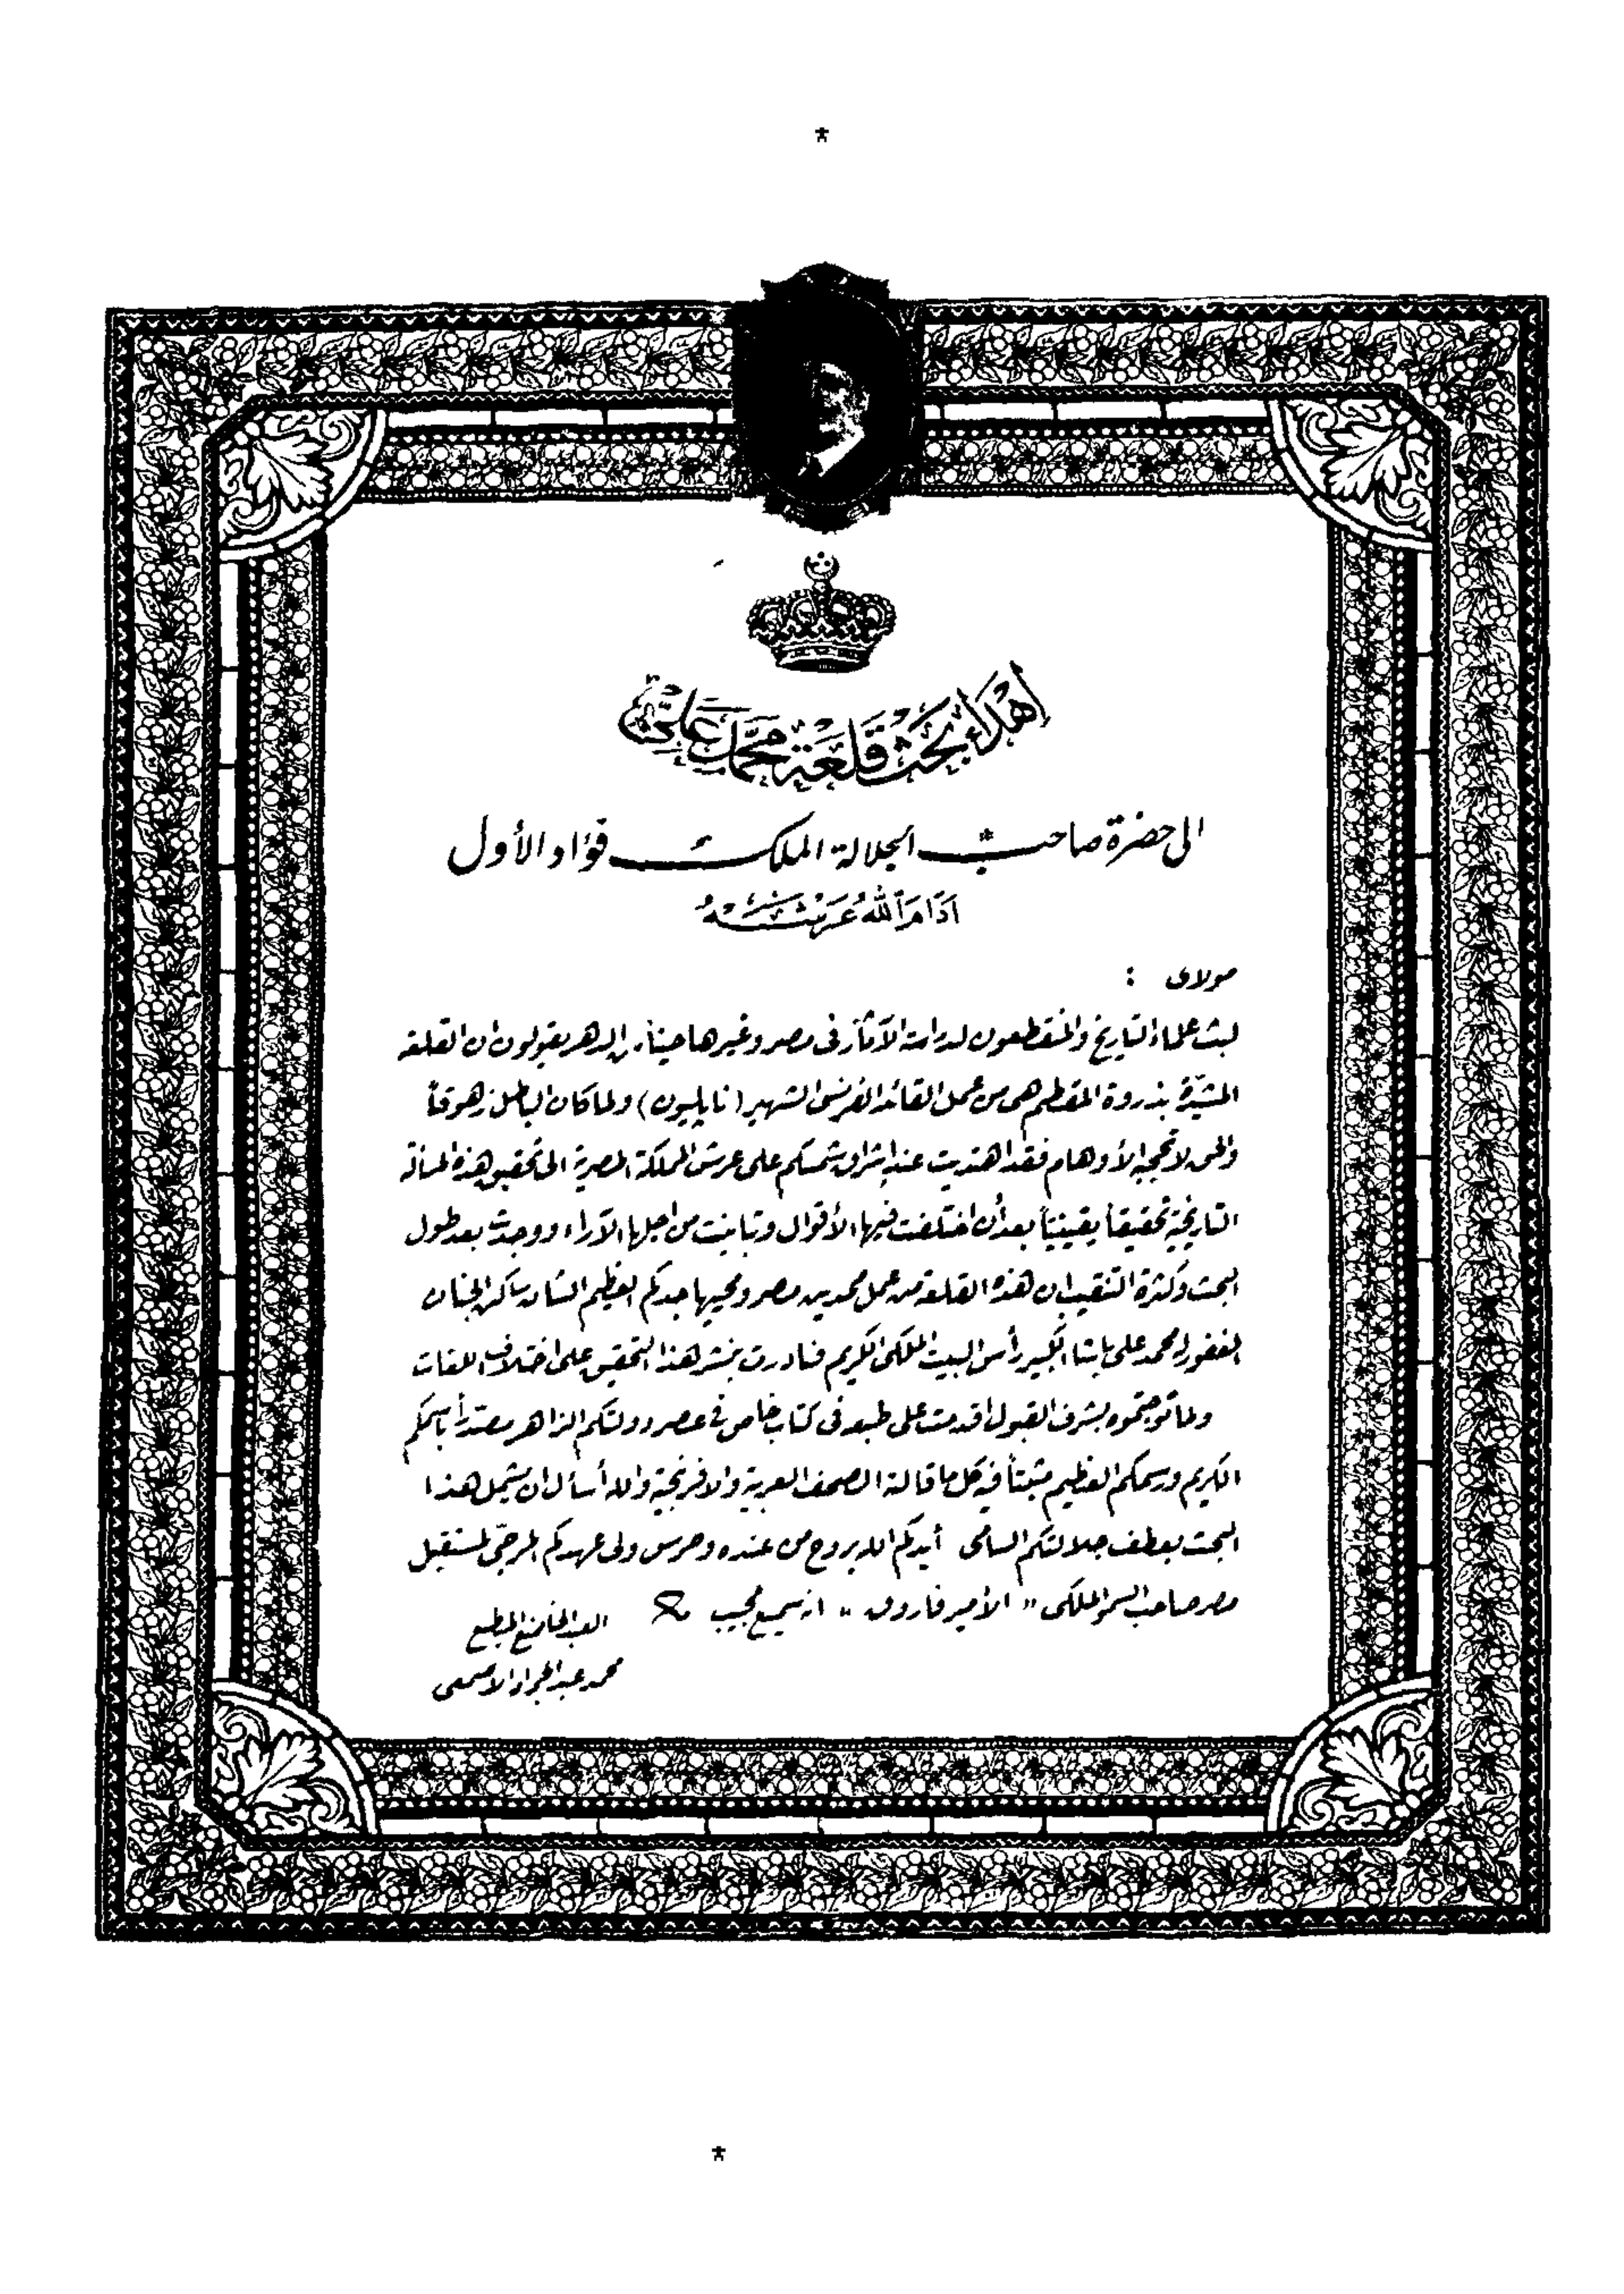 *
إهداء بحث قلعة محمد علي
الى حضرة صاحب الجلالة الملك فؤاد الأول
أدام الله عرشه
مولاى :
لبث علماء التاريخ والمنقطعون لدراسة الآثار فى مصر وغيرها حيناً من الدهر يقولون ان القلعة
المشيّدة بذروة المقطم هى من عمل القائد الفرنسى الشهير ( نابليون ) ولما كان الباطل زهوقاً
والحق لا تحجبه الأوهام فقد اهتديت عند إشراق شمسكم على عرش المملكة المصرية الى تحقيق هذه المسألة
التاريخية تحقيقاً يقينياً بعد أن اختلفت فيها الأقوال وتباينت من اجلها الآراء ووجدت بعد طول
البحث وكثرة التنقيب ان هذه القلعة من عمل ممدين مصر ومحييها جدكم العظيم الشان ساكن الجنان
المغفور له محمد على باشا الكبير رأس البيت الملكى الكريم فبادرت بنشر هذا التحقيق على اختلاف اللغات
ولما توجتموه بشرف القبول اقدمت على طبعه فى كتاب خاص فى عصر دولتكم الزاهر مصدّراً باسمكم
الكريم ورسمكم العظيم مثبتاً فيه كل ما قالته الصحف العربية والافرنجية والله أسأل ان يشمل هذا
البحث بعطف جلالتكم السامى أيدكم الله بروح من عنده وحرس ولى عهدكم المرجّى لمستقبل
مصر صاحب السمو الملكى " الأمير فاروق " انه سميع مجيب
العبد الخاضع المطيع
محمد عبد الجواد الاصمعى
*